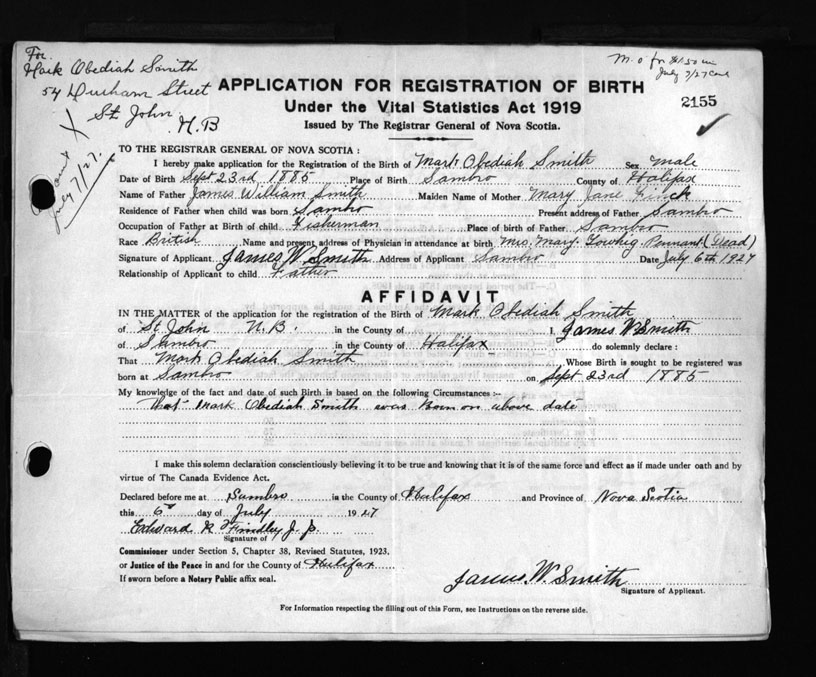 For
Mark Obediah Smith
54 Durham Street
St. John
N.B
July 7/27.
M.O for $1.50
July 7/27
2155
APPLICATION FOR REGISTRATION OF BIRTH
Under the Vital Statistics Act 1919
Issued by The Registrar General of Nova Scotia.
TO THE REGISTRAR GENERAL OF NOVA SCOTIA :
I hereby make application for the Registration of the Birth of Mark Obediah Smith Sex male
Date of Birth Sept 23rd 1885 Place of Birth Sambro County of Halifax
Name of Father James William Smith Maiden Name of Mother Mary Jane Finck
Residence of Father when child was born Sambro Present address of Father Sambro
Occupation of Father at Birth of child Fisherman Place of birth of Father Sambro
Race British Name and present address of Physician in attendance at birth Mrs. Mary Pennant (Dead)
Signature of Applicant James W. Smith Address of Applicant Sambro Date July 6th 1927
Relationship of Applicant to child Father
AFFIDAVIT
IN THE MATTER of the application for the registration of the Birth of Mark Obediah Smith
of St John N.B. in the County of I, James W. Smith
of Sambro in the County of Halifax do solemnly declare :
That Mark Obediah Smith Whose Birth is sought to be registered was
born at Sambro on Sept 23rd 1885
My knowledge of the fact and date of such Birth is based on the following Circumstances :-
That Mark Obediah Smith was Born on above date
I make this solemn declaration conscientiously believing it to be true and knowing that it is of the same force and effect as if made under oath and by
virtue of The Canada Evidence Act.
Declared before me at Sambro in the County of Halifax and Province of Nova Scotia
this 6th day of July 1927
Edward R Findley J.P.
Signature of
Commissioner under Section 5, Chapter 38, Revised Statutes, 1923.
or Justice of the Peace in and for the County of Halifax
If sworn before a Notary Public affix seal.
James W. Smith
Signature of Applicant.
For Information respecting the filling out of this Form, see Instructions on the reverse side.